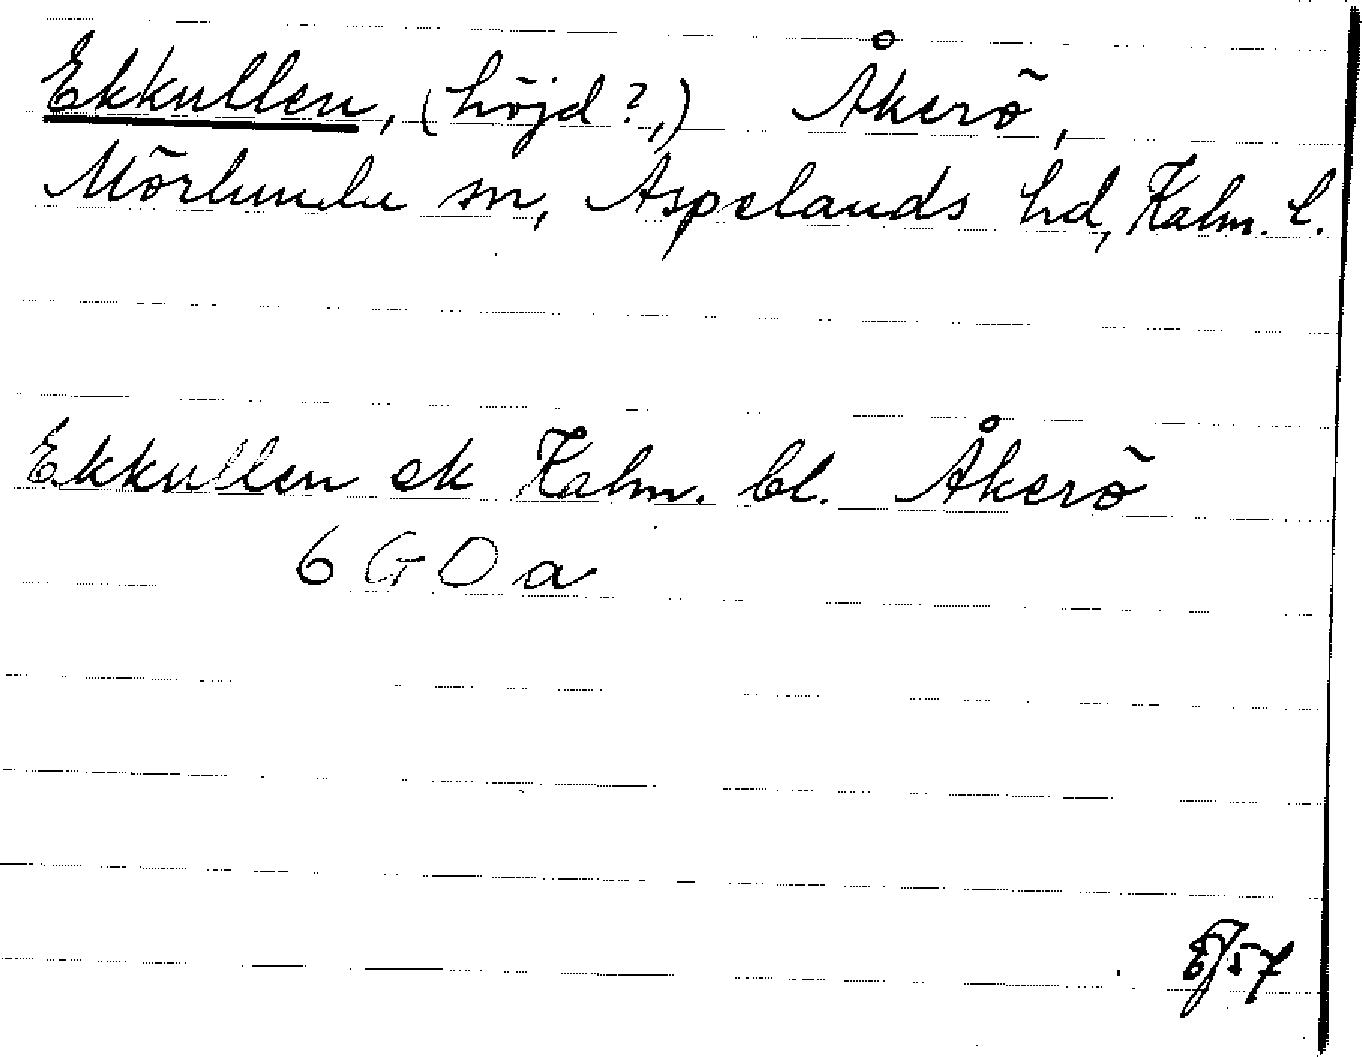 Ekkullen, (höjd?,) Åkerö,
Mörlunda sn, Aspelands hd, Kalm. l.
Ekkullen ek Kalm. bl. Åkerö
6 G O a